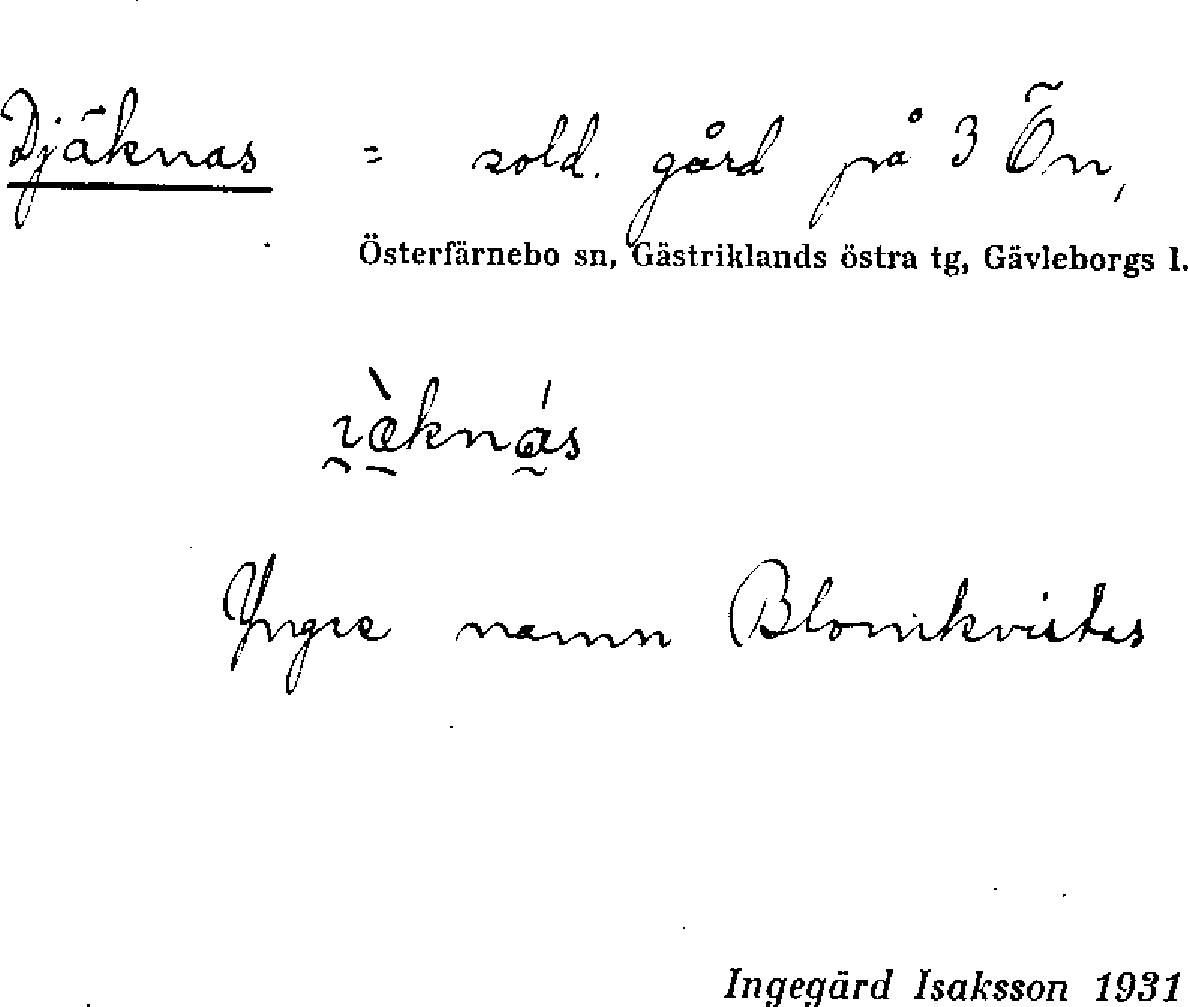 Djäknas = sold. gård på 3 Ön,
Österfärnebo sn, Gästriklands östra tg, Gävleborgs l.
Yngre namn Blomkvistas
Ingegärd Isaksson 1931